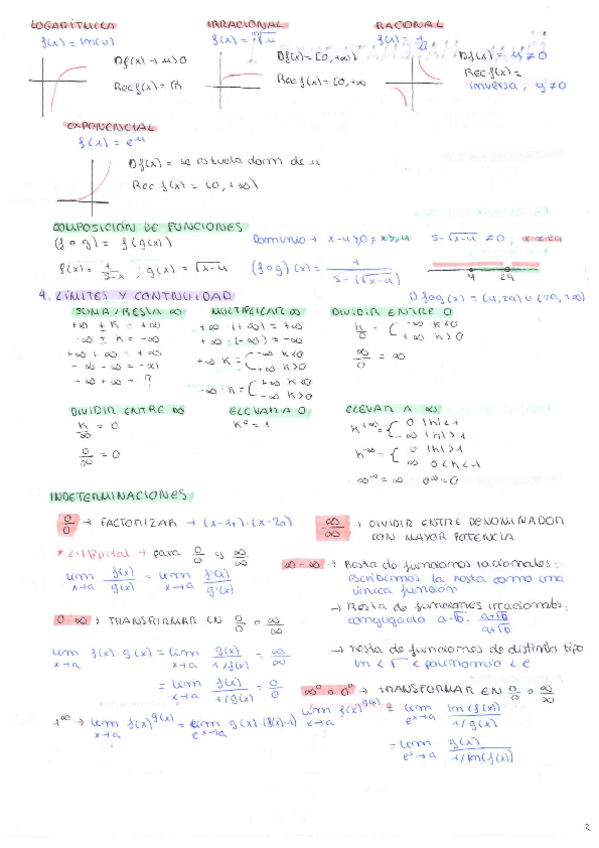 LOGARÍTMICA IRRACIONAL RACIONAL
f(x) = ln(u) f(x) = ⁿ√u f(x) = 1/u
Df(x) → u>0 Df(x) = [0, +∞) Df(x) = u≠0
Rec f(x) = R Rec f(x) = [0, +∞) Rec f(x) =
inversa, y≠0
EXPONENCIAL
f(x) = e^u
Df(x) = se estudia dom de u
Rec f(x) = (0, +∞)
COMPOSICIÓN DE FUNCIONES
(f o g) = f(g(x)) Dominio → x-4≥0; x≥4 5-√x-4 ≠0; x≠29
f(x) = 1/5-x ; g(x) = √x-4 (f o g)(x) = 1/5-(√x-4) 4 29
D fog(x) = [4,29) ∪ (29,+∞)
4. LÍMITES Y CONTINUIDAD
SUMA/RESTA ∞ MULTIPLICAR ∞ DIVIDIR ENTRE 0
+∞ ± K = +∞ +∞ · (+∞) = +∞ K/0 = { -∞ K<0
-∞ ± K = -∞ +∞ · (-∞) = -∞ +∞ K>0
+∞ + ∞ = +∞ +∞ · K = { -∞ K<0 ∞/0 = ∞
-∞ - ∞ = -∞ +∞ K>0
-∞ + ∞ = ? -∞ · K = { +∞ K<0
-∞ K>0
DIVIDIR ENTRE ∞ ELEVAR A 0 ELEVAR A ∞
K/∞ = 0 K⁰ = 1 K^+∞ = { 0 |K|<1
∞ |K|>1
0/∞ = 0 K^-∞ = { 0 |K|>1
∞ 0<K<1
∞^∞ = ∞ 0^∞ = 0
INDETERMINACIONES
0/0 → FACTORIZAR → (x-x₁)·(x-x₂) ∞/∞ → DIVIDIR ENTRE DENOMINADOR
CON MAYOR POTENCIA
* L'Hôpital → para 0/0 y ∞/∞
lim x→a f(x)/g(x) = lim x→a f'(x)/g'(x)
∞-∞ → Resta de funciones racionales:
escribimos la resta como una
única función
→ Resta de funciones irracionales:
conjugado a-√b · a+√b/a+√b
→ resta de funciones de distinto tipo
ln < √ < polinomio < e
0·∞ → TRANSFORMAR EN 0/0 o ∞/∞
lim x→a f(x)·g(x) = lim x→a g(x)/1/f(x) = ∞/∞
= lim x→a f(x)/1/g(x) = 0/0
∞⁰ o 0⁰ → TRANSFORMAR EN 0/0 o ∞/∞
lim x→a f(x)^g(x) = lim e^x→a ln(f(x))/1/g(x)
= lim e^x→a g(x)/1/ln(f(x))
1^∞ → lim x→a f(x)^g(x) = lim e^x→a g(x)·(f(x)-1)
2